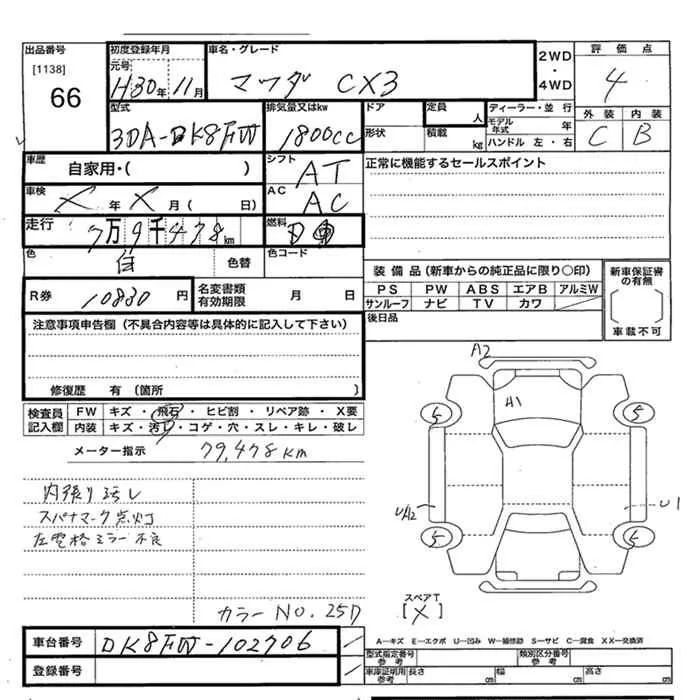 出品番号 初度登録年月 車名・グレード 2WD・4WD 評価点
[1138] 元号
66 H30年11月 マツダ CX3 4
型式 排気量又はkw ドア 定員 人 ディーラー・並行 外装 内装
3DA-DK8FW 1800cc 形状 積載 kg モデル年式 年 C B
ハンドル 左・右
車歴 シフト 正常に機能するセールスポイント
自家用・( ) AT
車検 AC
X年X月( 日) AC
走行 燃料
7万9千478km D
色 色替 色コード
白
装備品(新車からの純正品に限り○印) 新車保証書の有無
PS PW ABS エアB アルミW
R券 10830円 名変書類有効期限 月 日 サンルーフ ナビ TV カワ
車載不可
注意事項申告欄(不具合内容等は具体的に記入して下さい) 後日品
修復歴 有(箇所 )
検査員記入欄 FW キズ・飛石・ヒビ割・リペア跡・X要
内装 キズ・汚れ・コゲ・穴・スレ・キレ・破レ
メーター指示 79,478km
内張り汚レ
スパナマーク点灯
左電格ミラー不良
カラーNO.25D
A2
A1
5 5
UA2 U1
5 5
スペアT
[X]
車台番号 DK8FW-102706
登録番号
A―キズ E―エクボ U―凹み W―補修跡 S―サビ C―腐食 XX―交換済
型式指定番号 参考 類別区分番号 参考
車庫証明用 参考 長さ cm 幅 cm 高さ cm